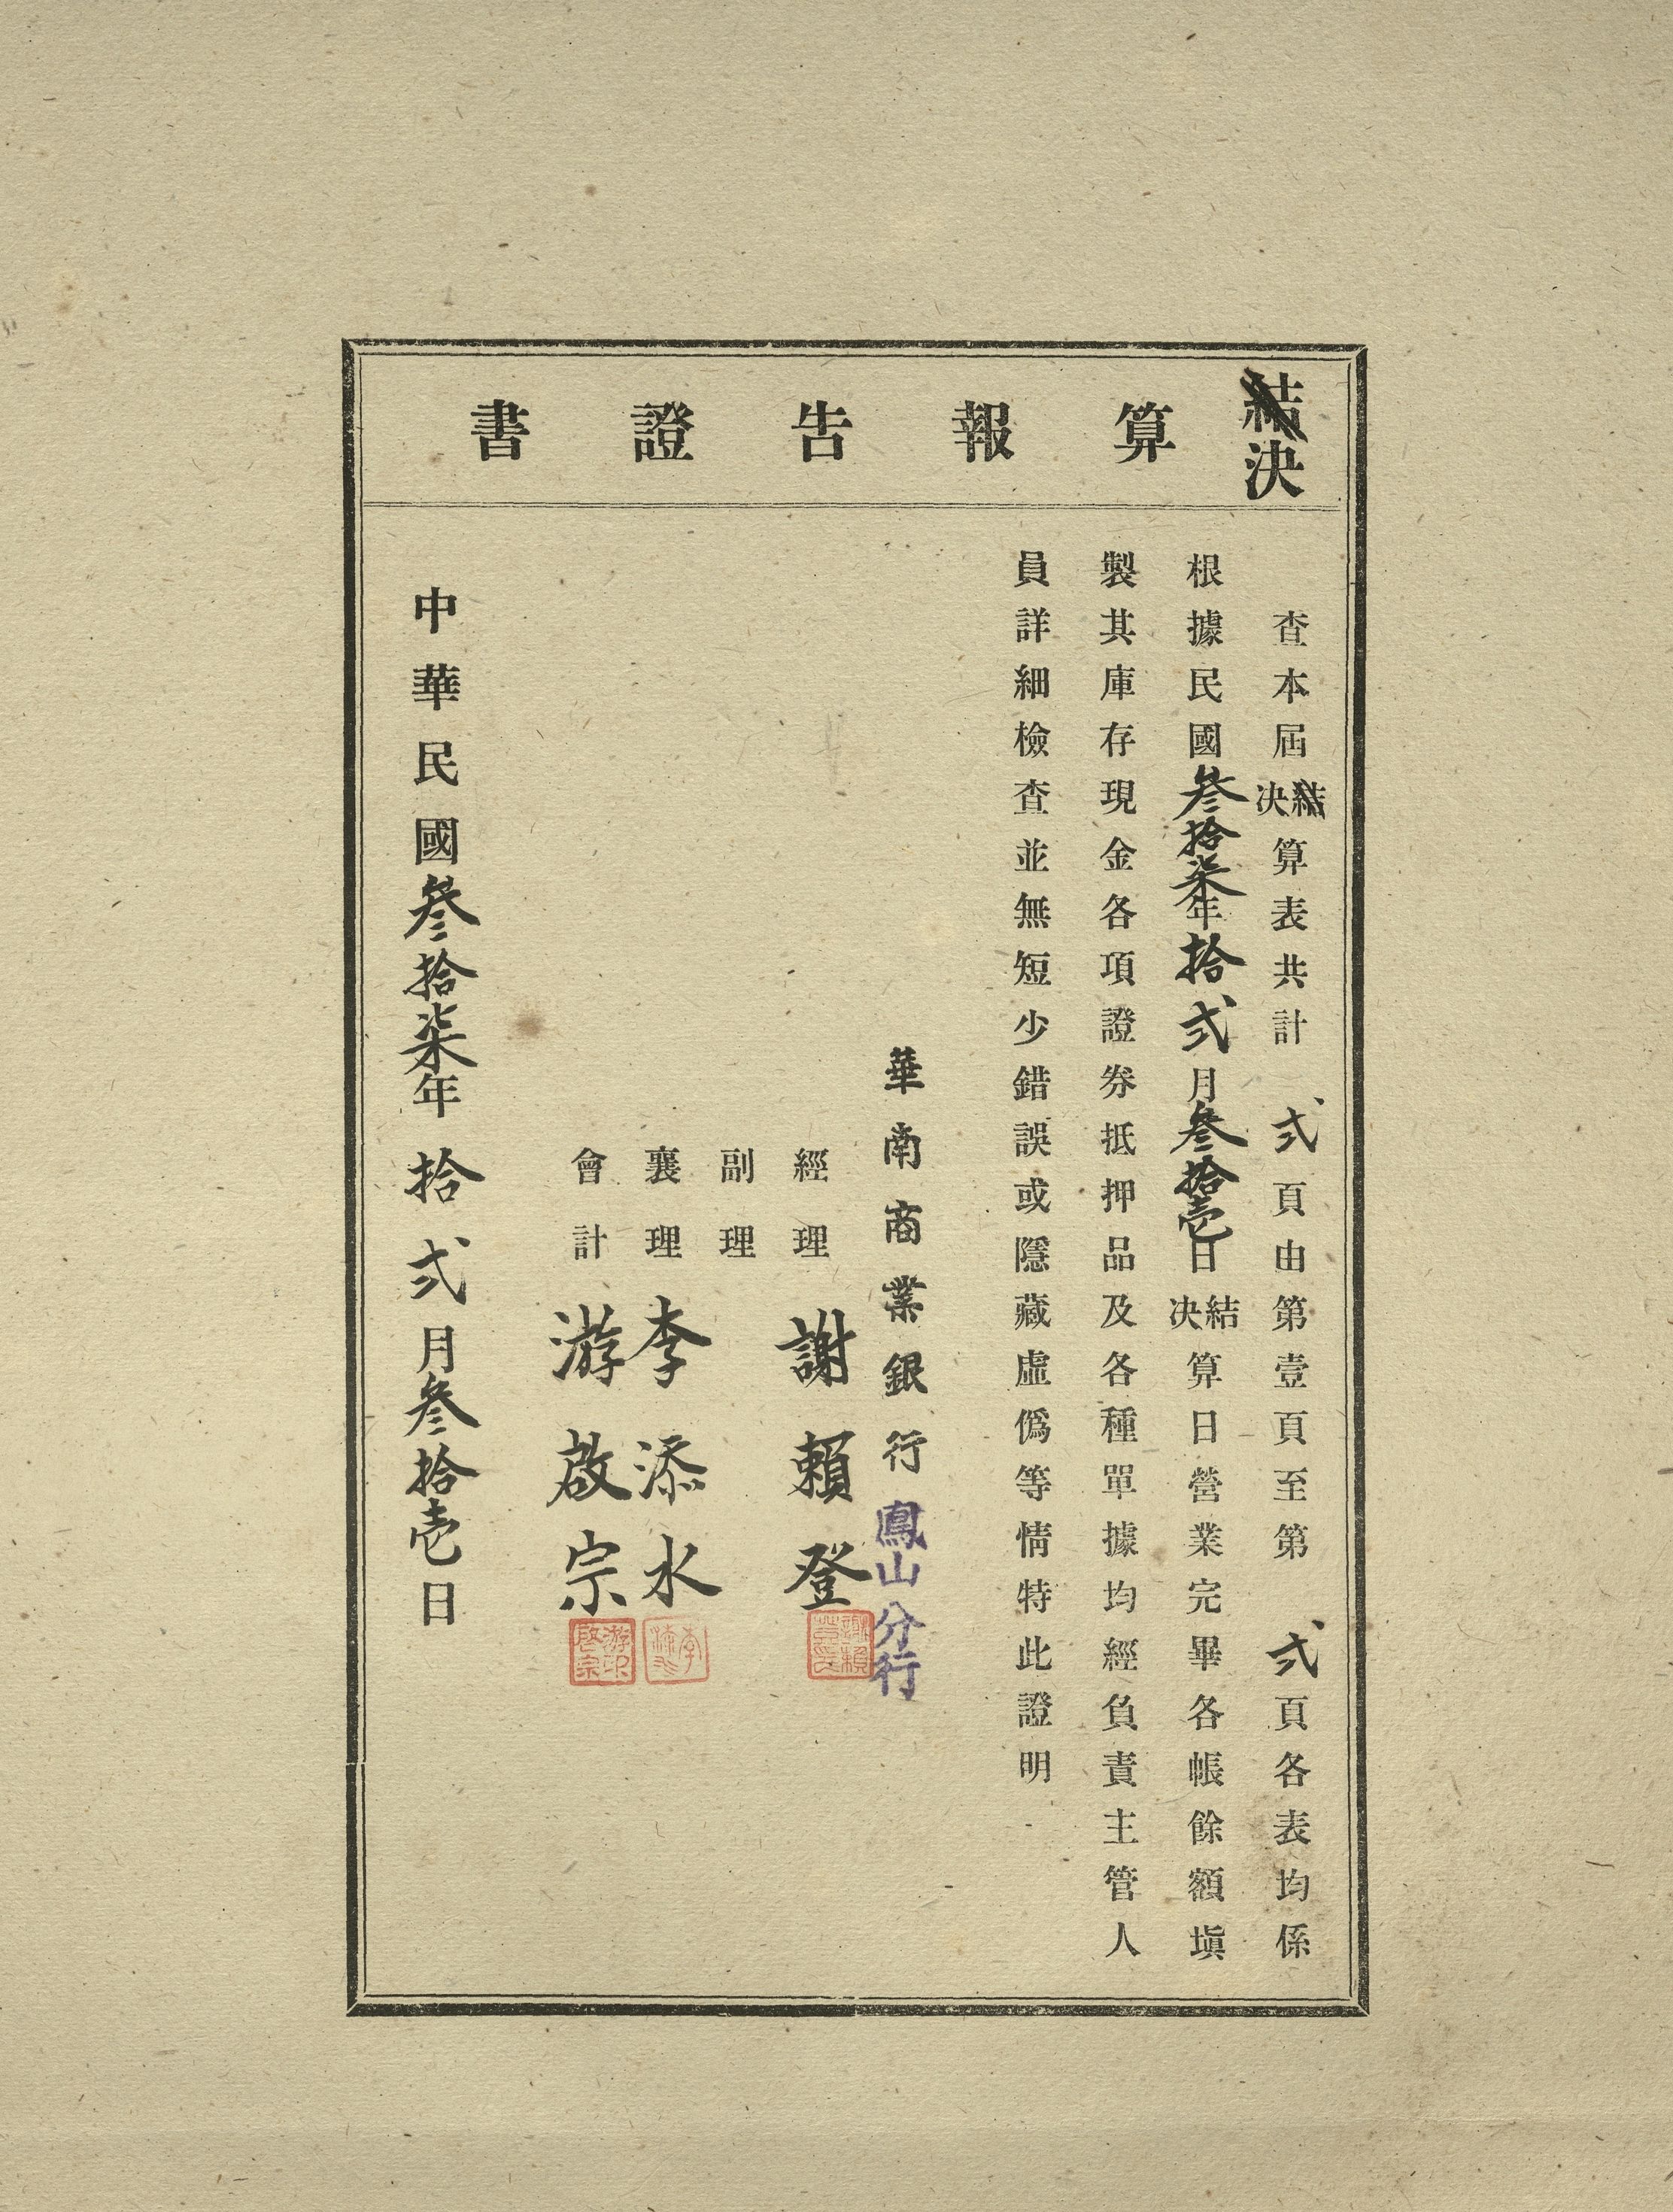 結決算報告證書
查本屆結決算表共計弍頁由第壹頁至第弍頁各表均係
根據民國叁拾柒年拾弍月叁拾壱日結決算日營業完畢各帳餘額塡
製其庫存現金各項證券抵押品及各種單據均經負責主管人
員詳細檢查並無短少錯誤或隱藏虛僞等情特此證明
華南商業銀行鳳山分行
經理 謝賴登
副理
襄理 李添水
會計 游啟宗
中華民國叁拾柒年拾弍月叁拾壱日